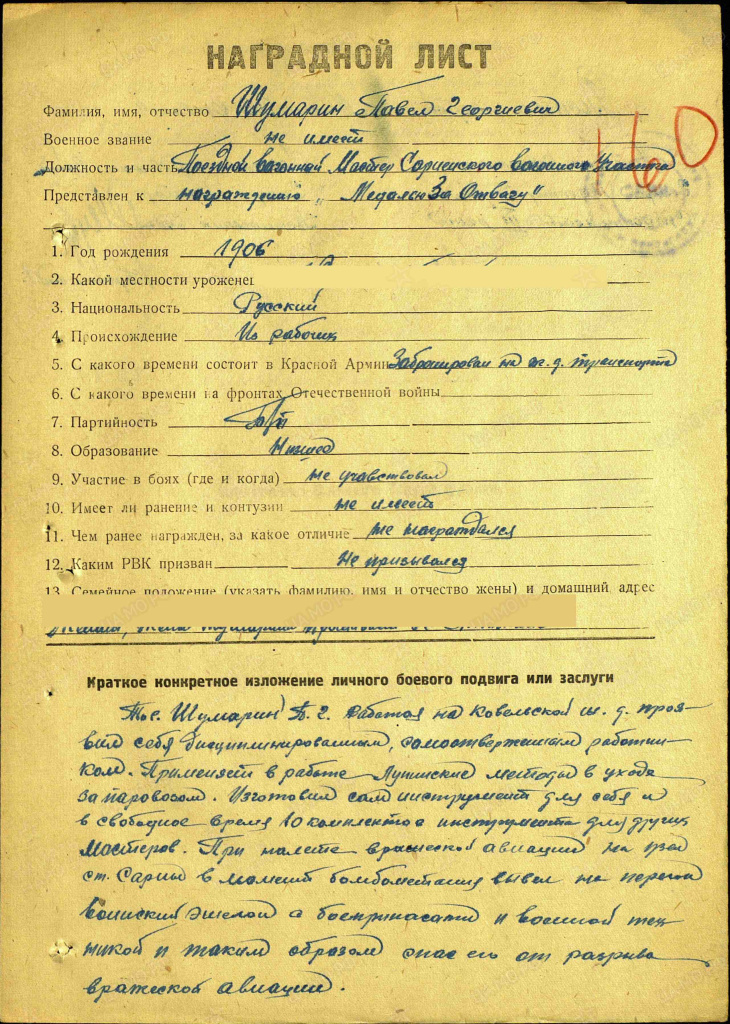 НАГРАДНОЙ ЛИСТ
160
Фамилия, имя, отчество Шумарин Павел Георгиевич
Военное звание не имеет
Должность и часть Поездной вагонной Мастер Сарненского вагонного Участка
Представлен к награждению „Медалью За Отвагу"
1. Год рождения 1906
2. Какой местности уроженец
3. Национальность Русский
4. Происхождение Из рабочих
5. С какого времени состоит в Красной Армии Забронирован на ж. д. транспорте
6. С какого времени на фронтах Отечественной войны
7. Партийность Б/п
8. Образование Низшее
9. Участие в боях (где и когда) не учавствовал
10. Имеет ли ранение и контузии не имеет
11. Чем ранее награжден, за какое отличие не награждался
12. Каким РВК призван Не призывался
13. Семейное положение (указать фамилию, имя и отчество жены) и домашний адрес
Краткое конкретное изложение личного боевого подвига или заслуги
Тов. Шумарин П. Г. Работая на Ковельской ж. д. проя-
вил себя дисциплинированным, самоотверженным работни-
ком. Применяет в работе Лунинские методы в уходе
за паровозом. Изготовил сам инструмент для себя и
в свободное время 10 комплектов инструмента для других
мастеров. При налете вражеской авиации на узел
ст. Сарны в момент бомбометания вывел на перегон
воинский эшелон с боеприпасами и военной тех-
никой и таким образом спас его от разрыва
вражеской авиации.